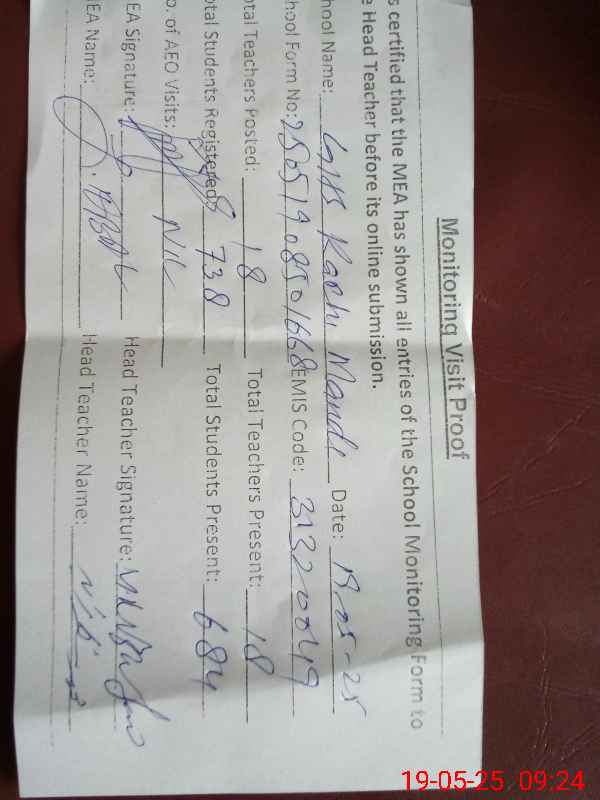 Monitoring Visit Proof
s certified that the MEA has shown all entries of the School Monitoring Form to
e Head Teacher before its online submission.
hool Name: GHS Kachi Mandi Date: 19-05-25
hool Form No: 25051908501668 EMIS Code: 31320049
otal Teachers Posted: 18 Total Teachers Present: 18
otal Students Registered: 738 Total Students Present: 684
o. of AEO Visits: Nil
EA Signature: Head Teacher Signature:
EA Name: Head Teacher Name:
19-05-25 09:24